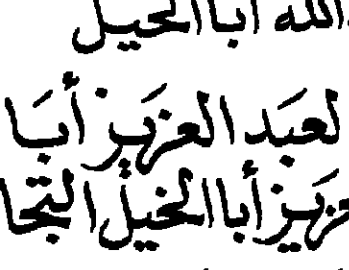 الله أبا الخيل
لعبد العزيز أبا
عزيز أبا الخيل التجا